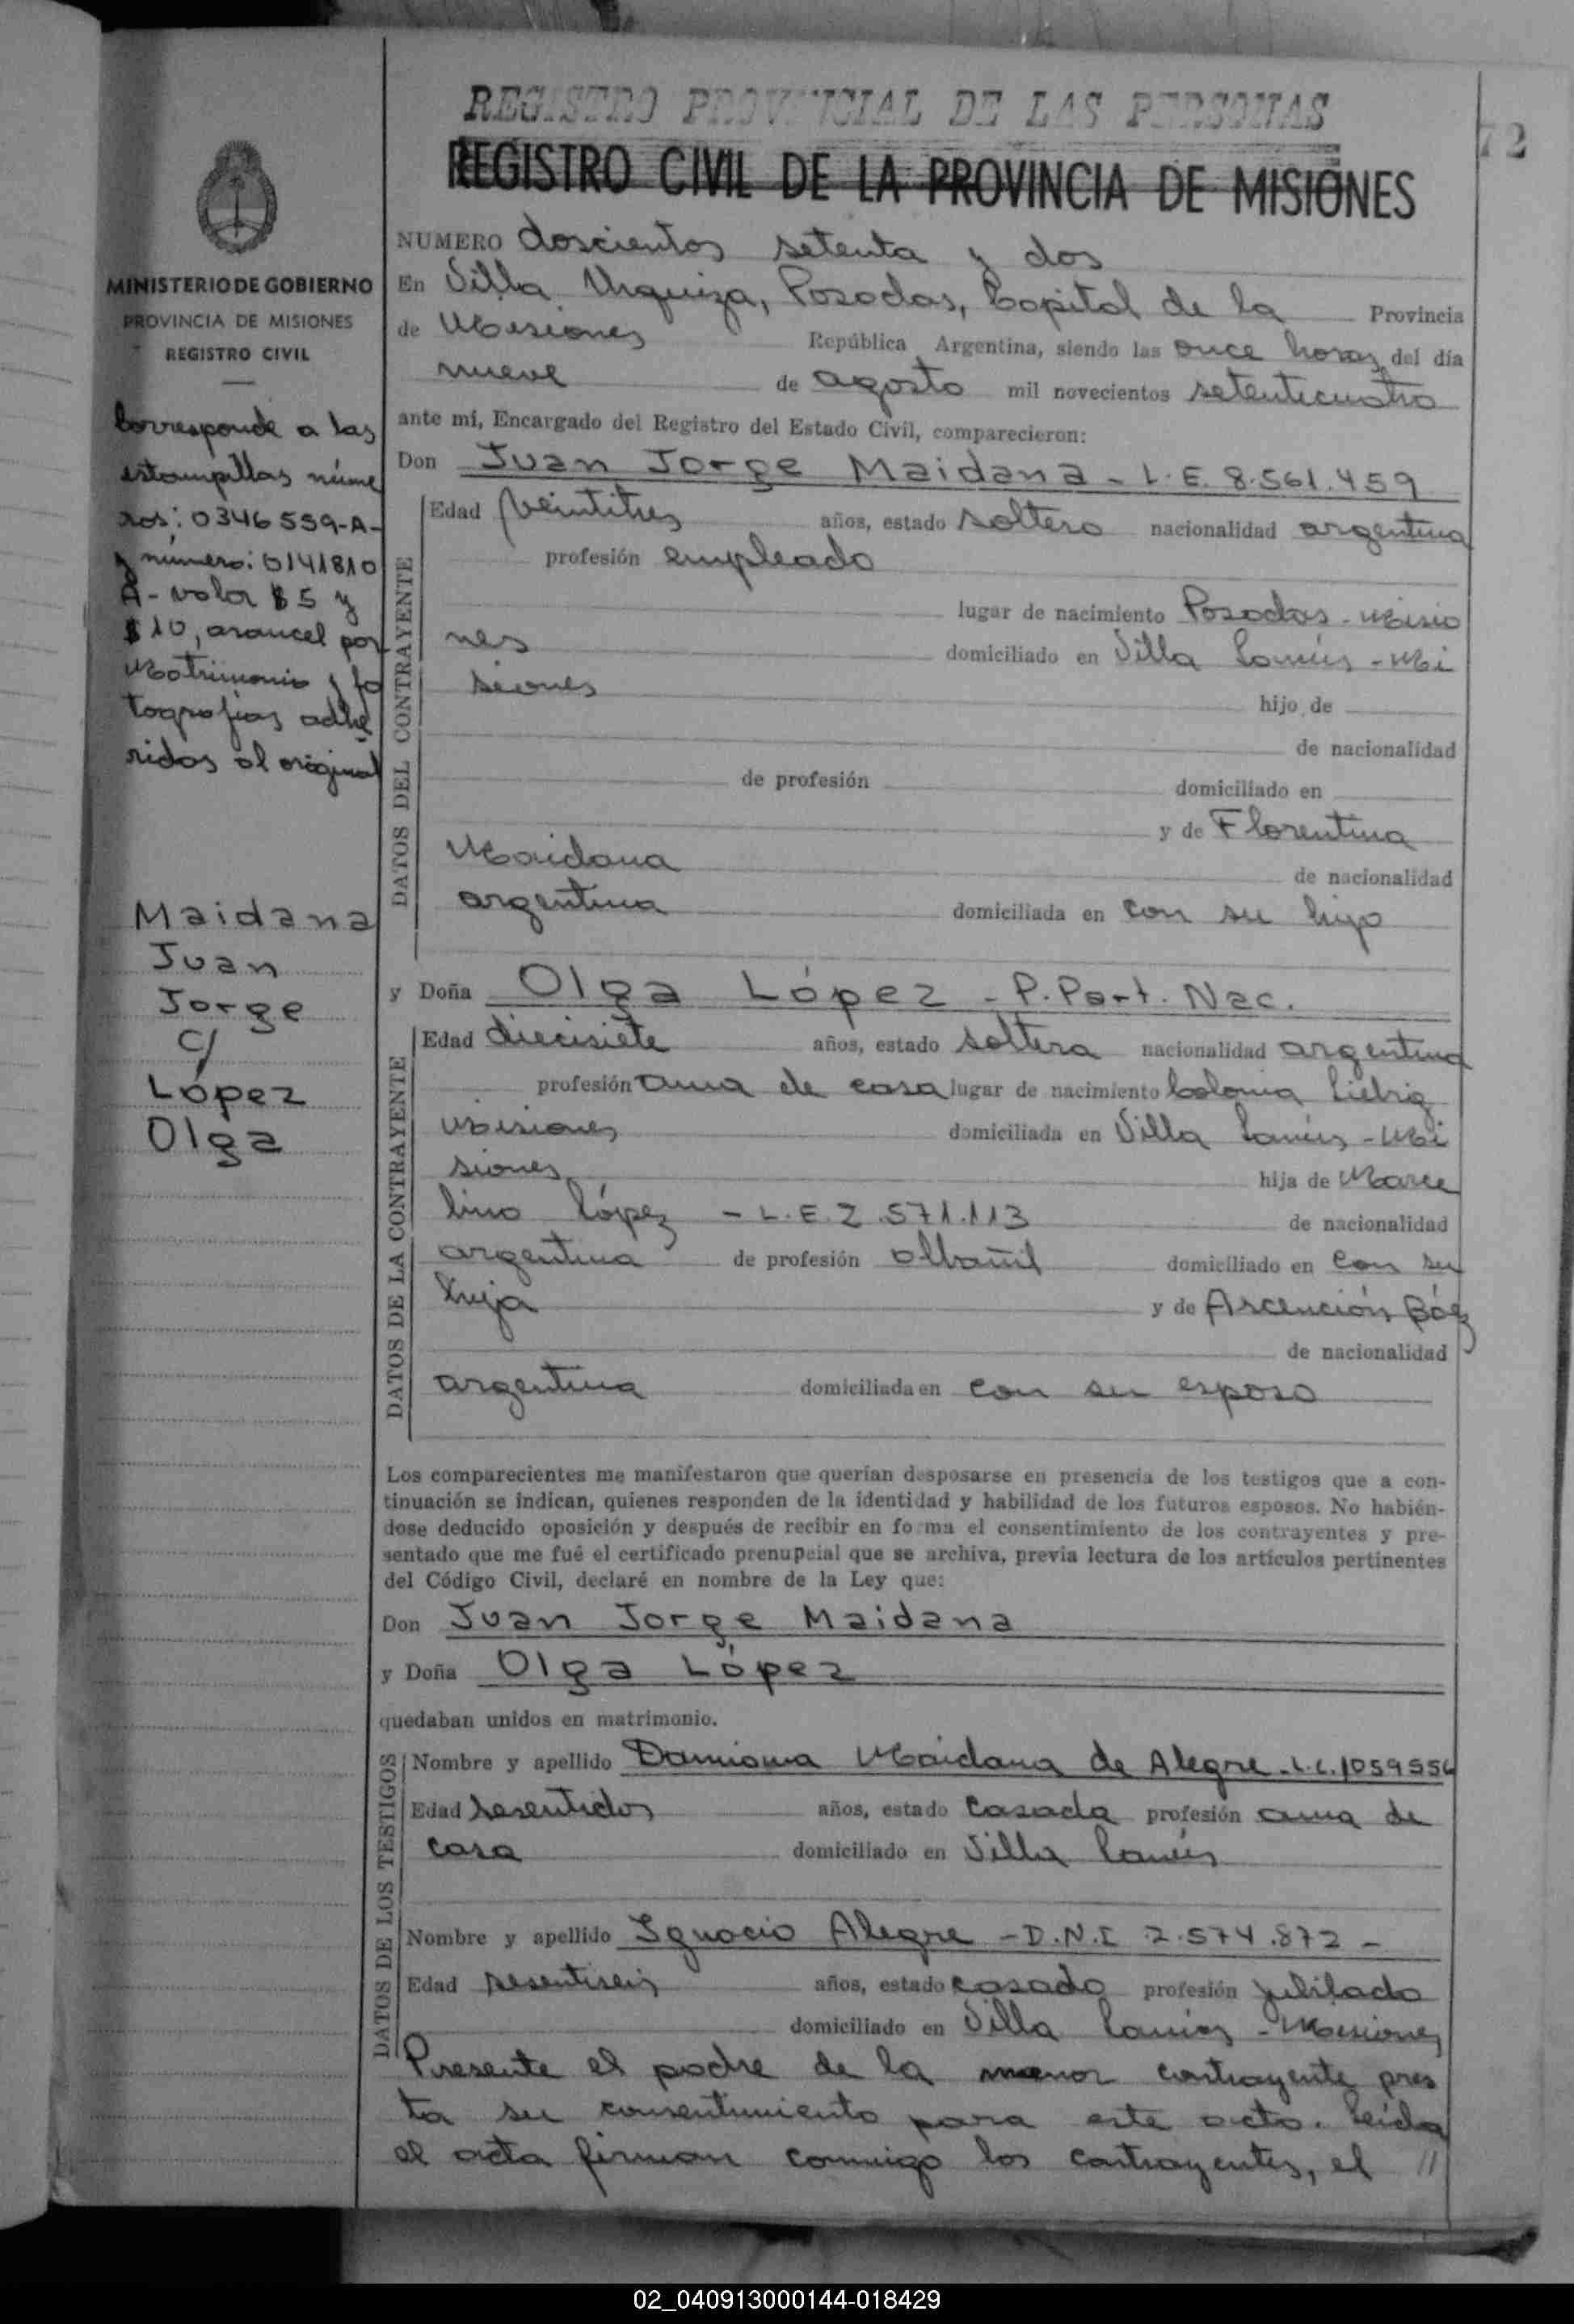 REGISTRO PROVINCIAL DE LAS PERSONAS
REGISTRO CIVIL DE LA PROVINCIA DE MISIONES
72
MINISTERIO DE GOBIERNO
PROVINCIA DE MISIONES
REGISTRO CIVIL
Corresponde a las
estampillas núme
ros: 0346559-A-
y número: 0141810
A- valor $5 y
$10, arancel por
Matrimonio y fo
tografias adhe
ridas al original
Maidana
Juan
Jorge
c/
López
Olga
NUMERO doscientos setenta y dos
En Villa Urquiza, Posadas, Capital de la Provincia
de Misiones República Argentina, siendo las once horas del día
nueve de agosto mil novecientos setenticuatro
ante mí, Encargado del Registro del Estado Civil, comparecieron:
Don Juan Jorge Maidana - L.E. 8.561.459
DATOS DEL CONTRAYENTE
Edad veintitres años, estado soltero nacionalidad argentina
profesión empleado
lugar de nacimiento Posadas - Misio
nes domiciliado en Villa Lanús - Mi
siones hijo de
de nacionalidad
de profesión domiciliado en
y de Florentina
Maidana de nacionalidad
argentina domiciliada en con su hijo
y Doña Olga López - P. Part. Nac.
DATOS DE LA CONTRAYENTE
Edad diecisiete años, estado soltera nacionalidad argentina
profesión ama de casa lugar de nacimiento Colonia Liebig
Misiones domiciliada en Villa Lanús - Mi
siones hija de Marce
lino López - L.E. 2.571.113 de nacionalidad
argentina de profesión albañil domiciliado en con su
hija y de Ascención Báez
de nacionalidad
argentina domiciliada en con su esposo
Los comparecientes me manifestaron que querían desposarse en presencia de los testigos que a con-
tinuación se indican, quienes responden de la identidad y habilidad de los futuros esposos. No habién-
dose deducido oposición y después de recibir en forma el consentimiento de los contrayentes y pre-
sentado que me fué el certificado prenupcial que se archiva, previa lectura de los artículos pertinentes
del Código Civil, declaré en nombre de la Ley que:
Don Juan Jorge Maidana
y Doña Olga López
quedaban unidos en matrimonio.
DATOS DE LOS TESTIGOS
Nombre y apellido Damiana Maidana de Alegre - L.C. 1059556
Edad sesentidos años, estado casada profesión ama de
casa domiciliado en Villa Lanús
Nombre y apellido Ignacio Alegre - D.N.I 2.574.872 -
Edad sesentiseis años, estado casado profesión jubilado
domiciliado en Villa Lanús - Misiones
Presente el padre de la menor contrayente pres
ta su consentimiento para este acto. Leída
el acta firman conmigo los contrayentes, el //
02_040913000144-018429